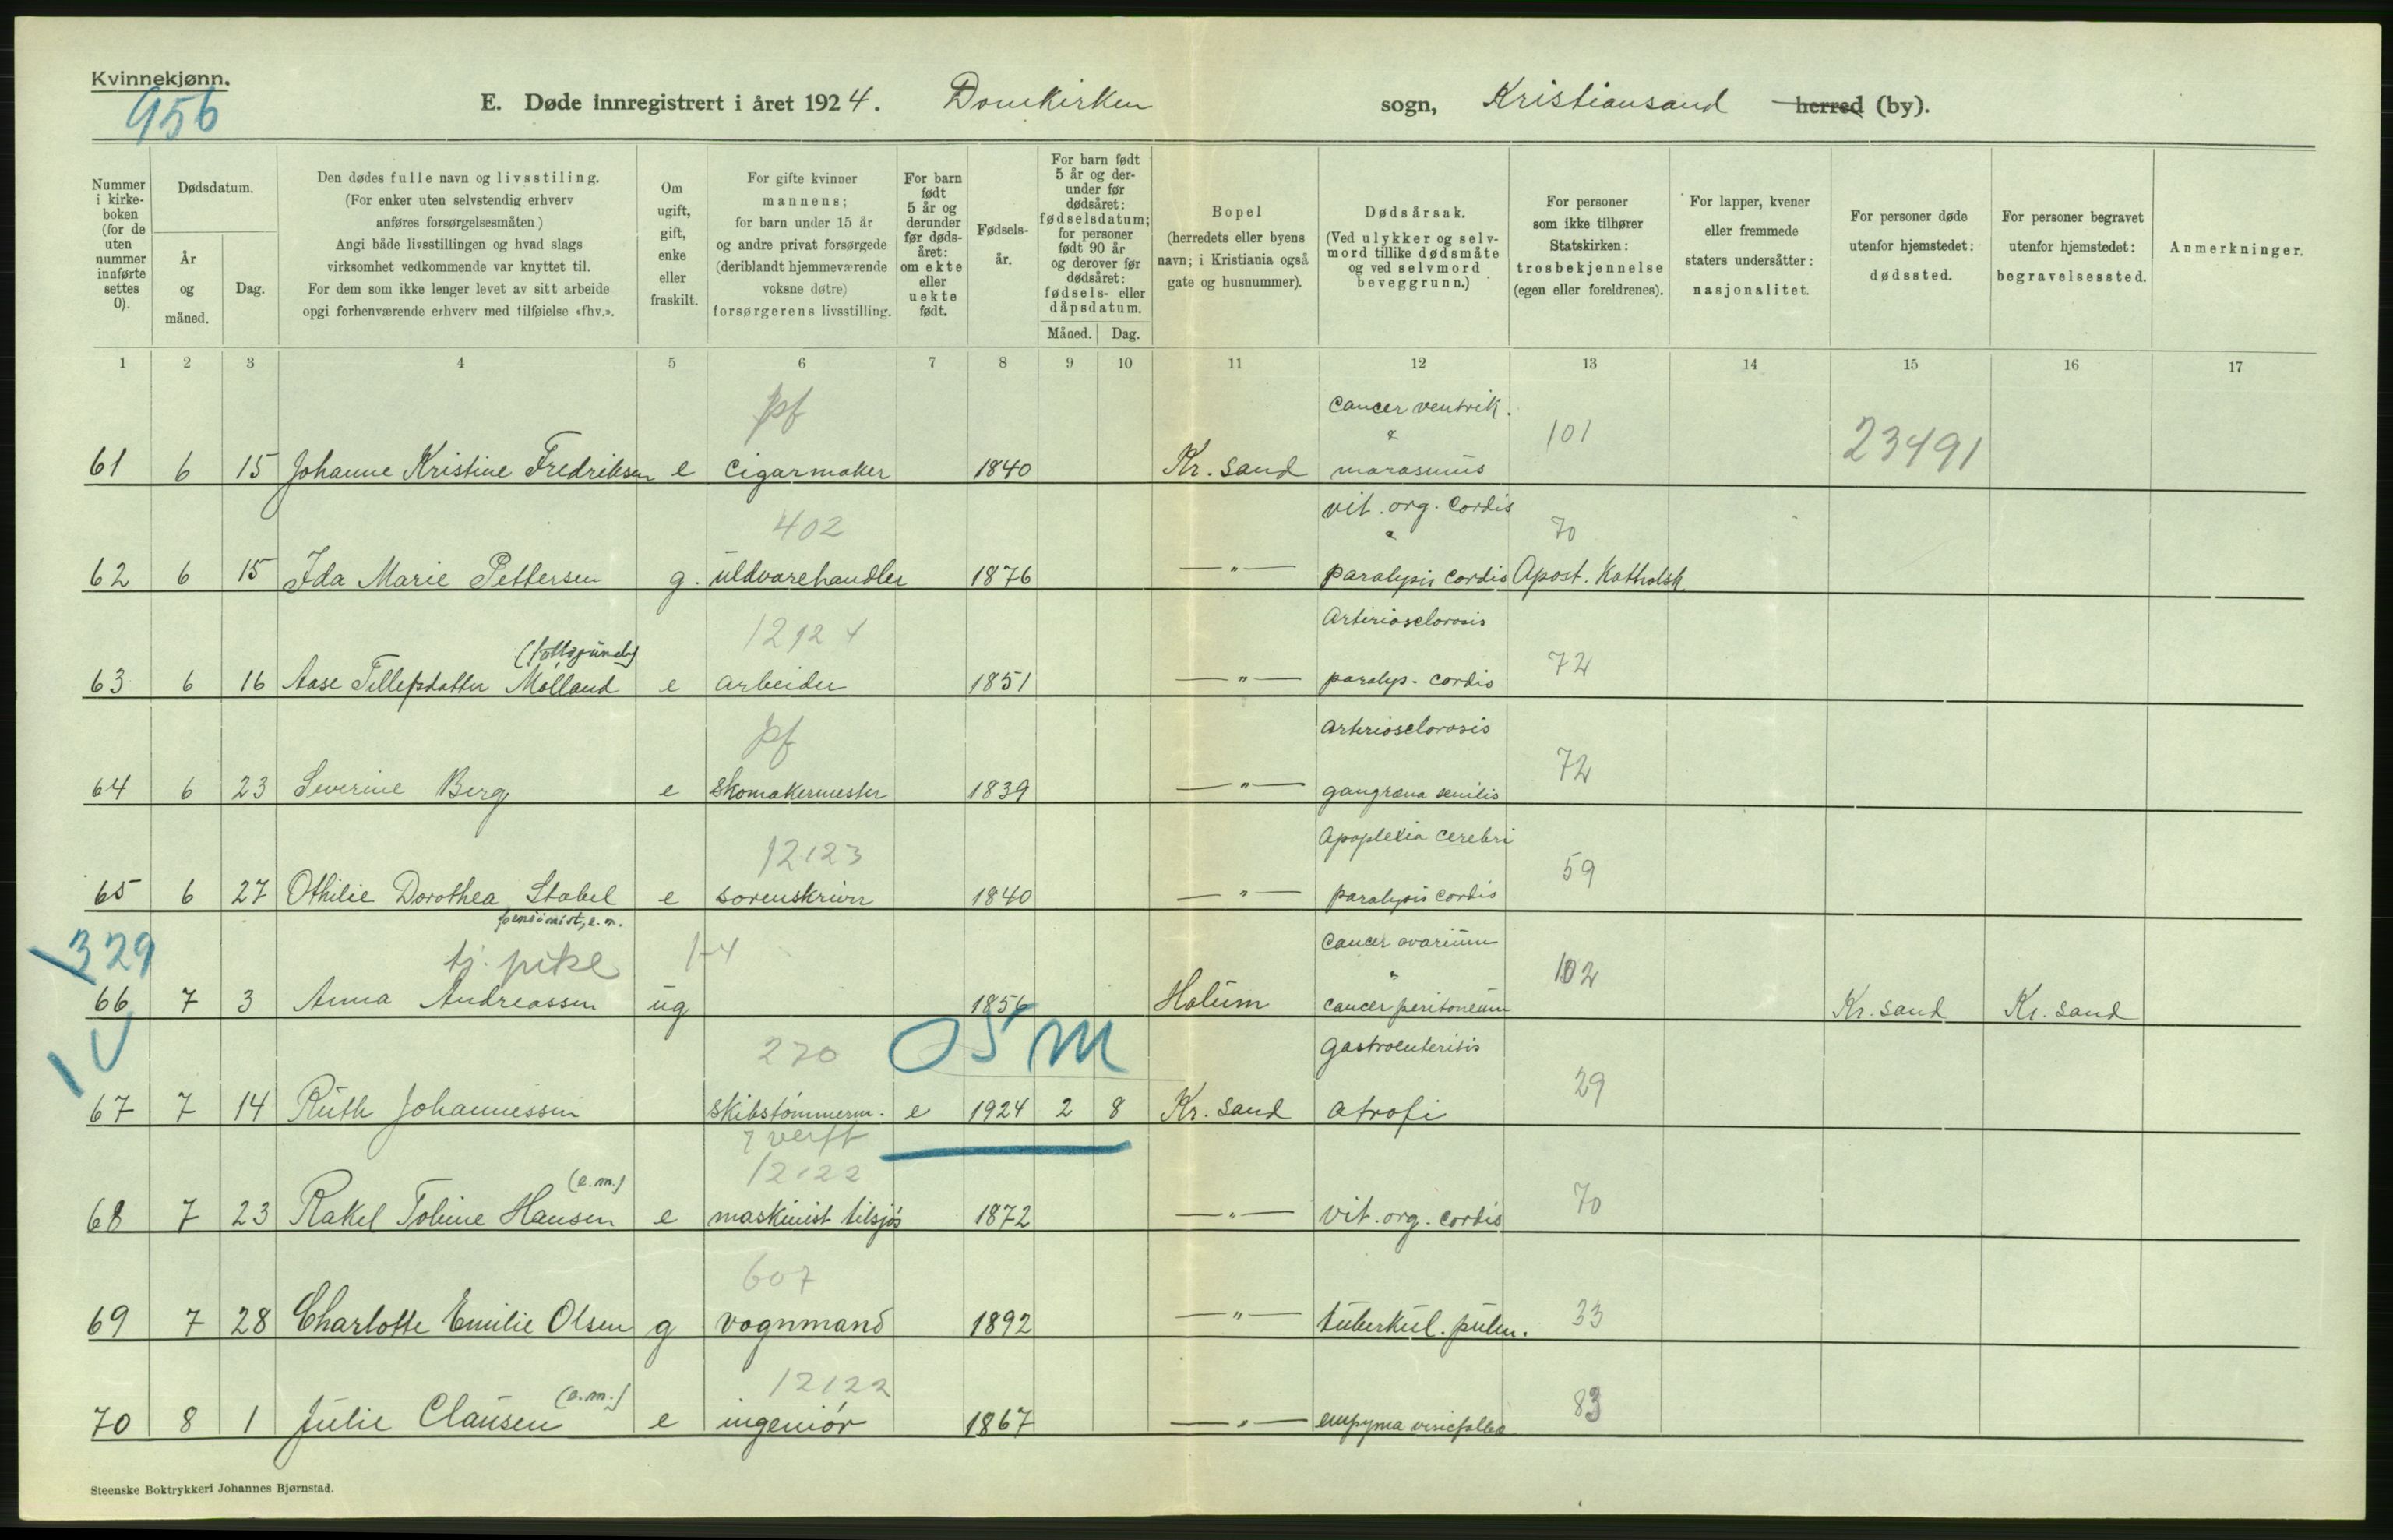 Kvinnekjønn.
956
E. Døde innregistrert i året 1924. Domkirken sogn, Kristiansand herred (by).
Nummer i kirke- boken (for de uten nummer innførte settes 0).
Dødsdatum.
År og måned.
Dag.
Den dødes fulle navn og livsstilling.
(For enker uten selvstendig erhverv
anføres forsørgelsesmåten.)
Angi både livsstillingen og hvad slags
virksomhet vedkommende var knyttet til.
For dem som ikke lenger levet av sitt arbeide
opgi forhenværende erhverv med tilføielse «fhv.».
Om ugift, gift, enke eller fraskilt.
For gifte kvinner
mannens;
for barn under 15 år
og andre privat forsørgede
(deriblandt hjemmeværende
voksne døtre)
forsørgerens livsstilling.
For barn født 5 år og derunder før døds- året: om ekte eller uekte født.
Fødsels- år.
For barn født 5 år og der- under før dødsåret: fødselsdatum; for personer født 90 år og derover før dødsåret: fødsels- eller dåpsdatum.
Måned. Dag.
Bopel
(herredets eller byens
navn; i Kristiania også
gate og husnummer).
Dødsårsak.
(Ved ulykker og selv-
mord tillike dødsmåte
og ved selvmord
beveggrunn.)
For personer
som ikke tilhører
Statskirken:
trosbekjennelse
(egen eller foreldrenes).
For lapper, kvener
eller fremmede
staters undersåtter:
nasjonalitet.
For personer døde
utenfor hjemstedet:
dødssted.
For personer begravet
utenfor hjemstedet:
begravelsessted.
Anmerkninger.
1 2 3 4 5 6 7 8 9 10 11 12 13 14 15 16 17
pf cancer ventrik.
& 101 23491
61 6 15 Johanne Kristine Fredriksen e cigarmaker 1840 Kr. sand marasmus
402 vit. org. cordis
& 70
62 6 15 Ida Marie Pettersen g. uldvarehandler 1876 — " — paralysis cordis Apost. Katholsk
(fattigunds) 12124 Arterioselorosis
72
63 6 16 Aase Tellefsdatter Mølland e arbeider 1851 — " — paralys. cordis
pf arterioselorosis
72
64 6 23 Severine Berg e skomakermester 1839 — " — gangræna senilis
12123 Apoplexia cerebri
59
65 6 27 Othilie Dorothea Stabel e sorenskriver 1840 — " — paralysis cordis
pensionist, e.m.
329 tj. pike 1-4 cancer ovarium
" 102
66 7 3 Anna Andreassen ug 1856 Holum cancer peritoneum Kr. sand Kr. sand
270 05 M gastroenteritis
29
67 7 14 Ruth Johannessen skibstømmerm. e 1924 2 8 Kr. sand atrofi
7 verft
12122
(e.m.) 70
68 7 23 Rakel Toline Hansen e maskinist tilsjøs 1872 — " — vit. org. cordis
607
33
69 7 28 Charlotte Emilie Olsen g vognmand 1892 — " — tuberkul. pulm.
12122
(e.m.) 83
70 8 1 Julie Clausen e ingeniør 1867 — " — empyma
Steenske Boktrykkeri Johannes Bjørnstad.